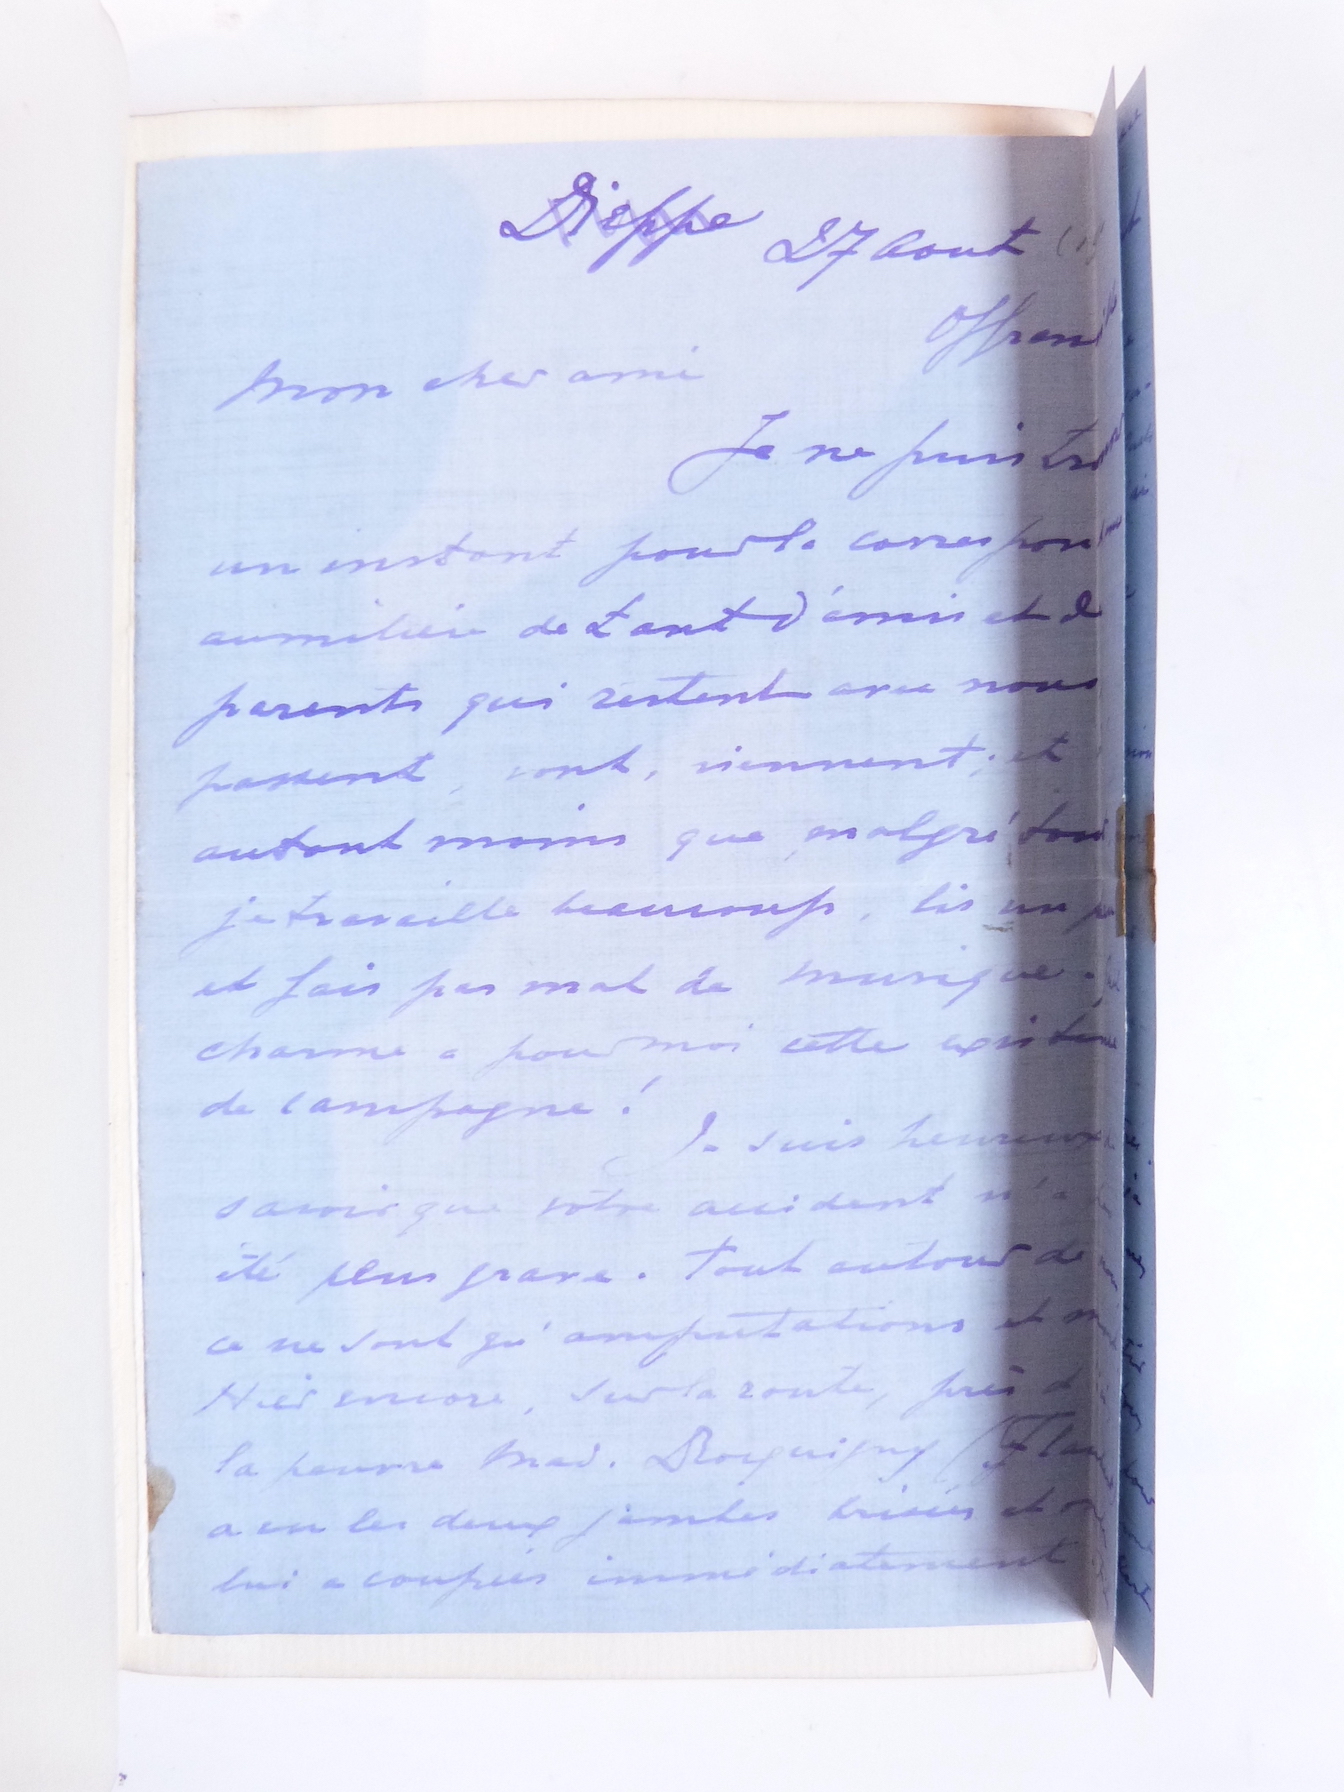 Dieppe 27 Aout (19
Offran
Mon cher ami
Je ne puis tro
un instant pour la correspon
au milieu de tant d'amis et d
parents qui restent avec nous
passent, vont, viennent; et
autant moins que malgré tout
je travaille beaucoup, lis un p
et fais pas mal de musique.
charme a pour moi cette existence
de campagne!
Je suis heureux
savoir que votre accident n'a
été plus grave. Tout autour de
ce ne sont qu'amputations et m
Hier encore, sur la route, près d
la pauvre Mad. Rocquigny (
a eu les deux jambes brisées et on
lui a coupées immédiatement